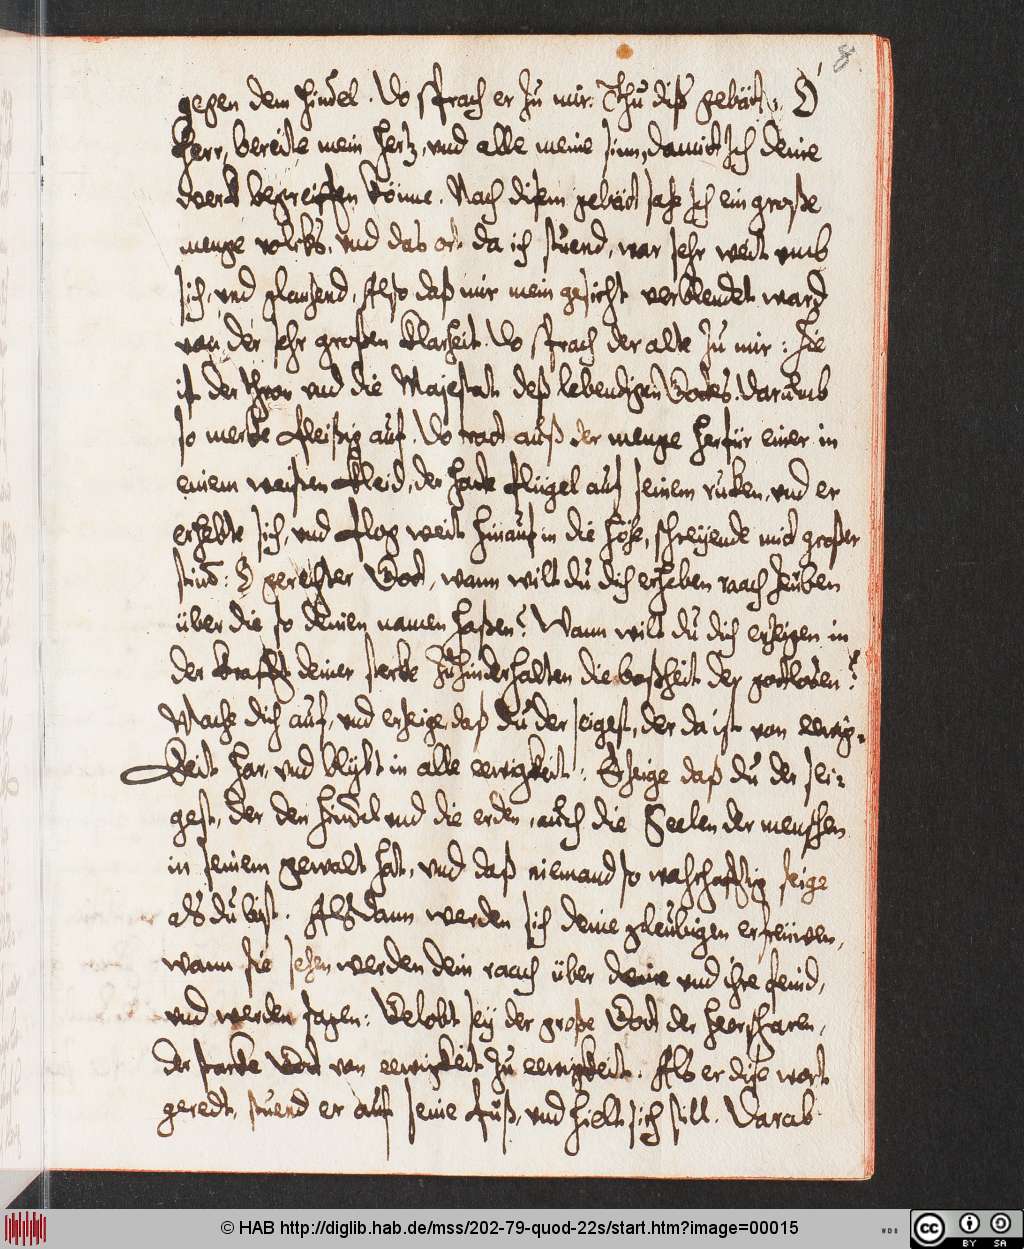 8
gegen dem himel. Do sprach er zu mir: Thu diß gebätt. O
Herr, bereite mein hertz, vnd alle meine sinn, damit Ich deine
werck begreiffen könne. Nach disem gebätt sahe Ich ein große
menge volcks, vnd das ort da ich stuend, war sehr weit vmb
sich, vnd glantzend, Also daß mir mein gesicht verblendet ward
von der sehr großen klarheit. Do sprach der alte zu mir: hie
ist der thron vnd die Majestat deß lebendigen Gottes. Darumb
so mercke fleißig auf. Do tratt auß der menge herfür einer in
einem weißen kleid, der hatte flügel auf seinem rucken, vnd er
erhebte sich, vnd flog weit hinauf in die höhe, schreijende mit großer
stim: O gerechter Gott, wann wilt du dich erheben raach zeüben
über die so deinen namen haßen? Wann wilt du dich erzeigen in
der krafft deiner sterke zuhinderhalten die boßheit der gottlosen?
Mache dich auf, vnd erzeige daß du der seigest, der da ist von ewig-
keit har, vnd blijbt in alle ewigkeit. Erzeige daß du der sei-
gest, der den himel vnd die erden, auch die Seelen der menschen
in seinem gewalt hat, vnd daß niemand so wahrhafftig seige
als du bist. Als dann werden sich deine gleubigen erfreüwen,
wann sie sehen werden dein raach über deine vnd ihre feind,
vnd werden sagen: Gelobt seÿ der große Gott der heerscharen,
der starke Gott von ewigkeit zu ewigkeit. Als er dise wort
geredt, stuend er auf seine füß, vnd hielt sich still. Darab
© HAB http://diglib.hab.de/mss/202-79-quod-22s/start.htm?image=00015
WDB
cc BY SA